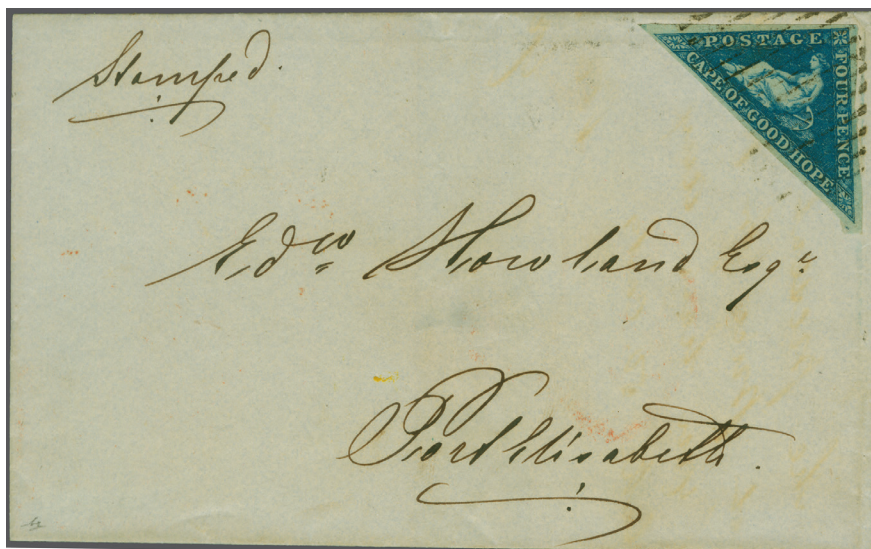 Stamped.
POSTAGE
FOUR PENCE
CAPE OF GOOD HOPE
Edwd Howland Esqr
Port Elisabeth.